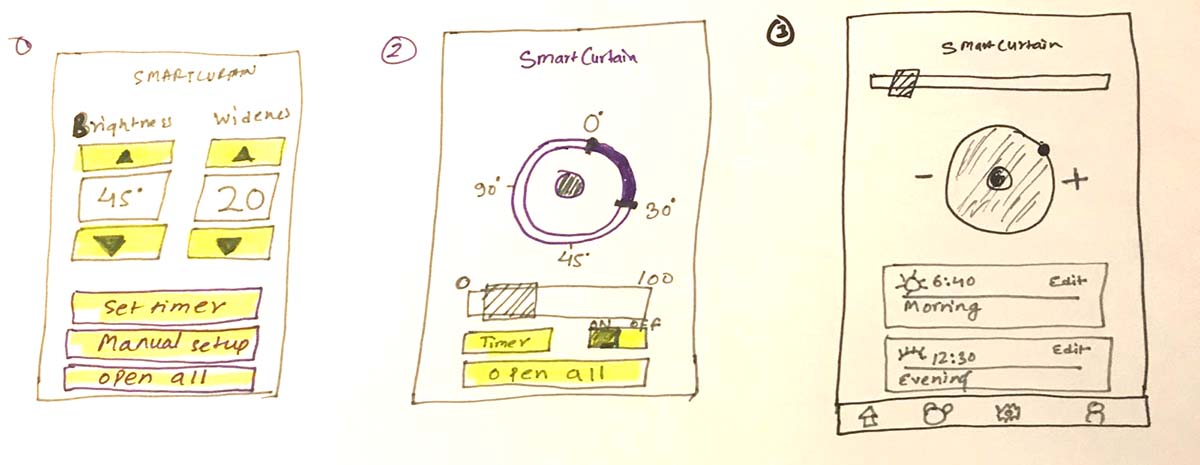 1
SMARTCURTAIN
Brightness Widenes
45° 20
Set timer
Manual setup
open all
2
Smart Curtain
0°
90° 30°
45°
0 100
ON OFF
Timer
open all
3
Smart Curtain
- +
6:40 Edit
Morning
12:30 Edit
Evening